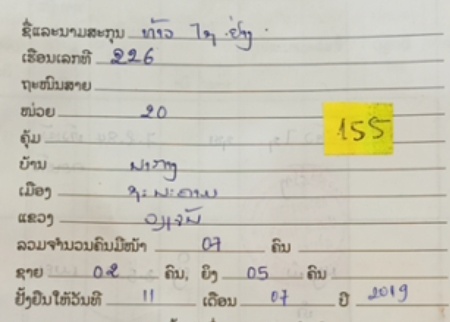 ຊື່ແລະນາມສະກຸນ ທ້າວ ໄຊ ຢ່າງ
ເຮືອນເລກທີ 226
ຖະໜົນສາຍ
ໜ່ວຍ 20
155
ຄຸ້ມ
ບ້ານ
ເມືອງ
ແຂວງ
ລວມຈຳນວນຄົນມີໜ້າ 07 ຄົນ
ຊາຍ 02 ຄົນ, ຍິງ 05 ຄົນ
ຢັ້ງຢືນໃຫ້ວັນທີ 11 ເດືອນ 07 ປີ 2019